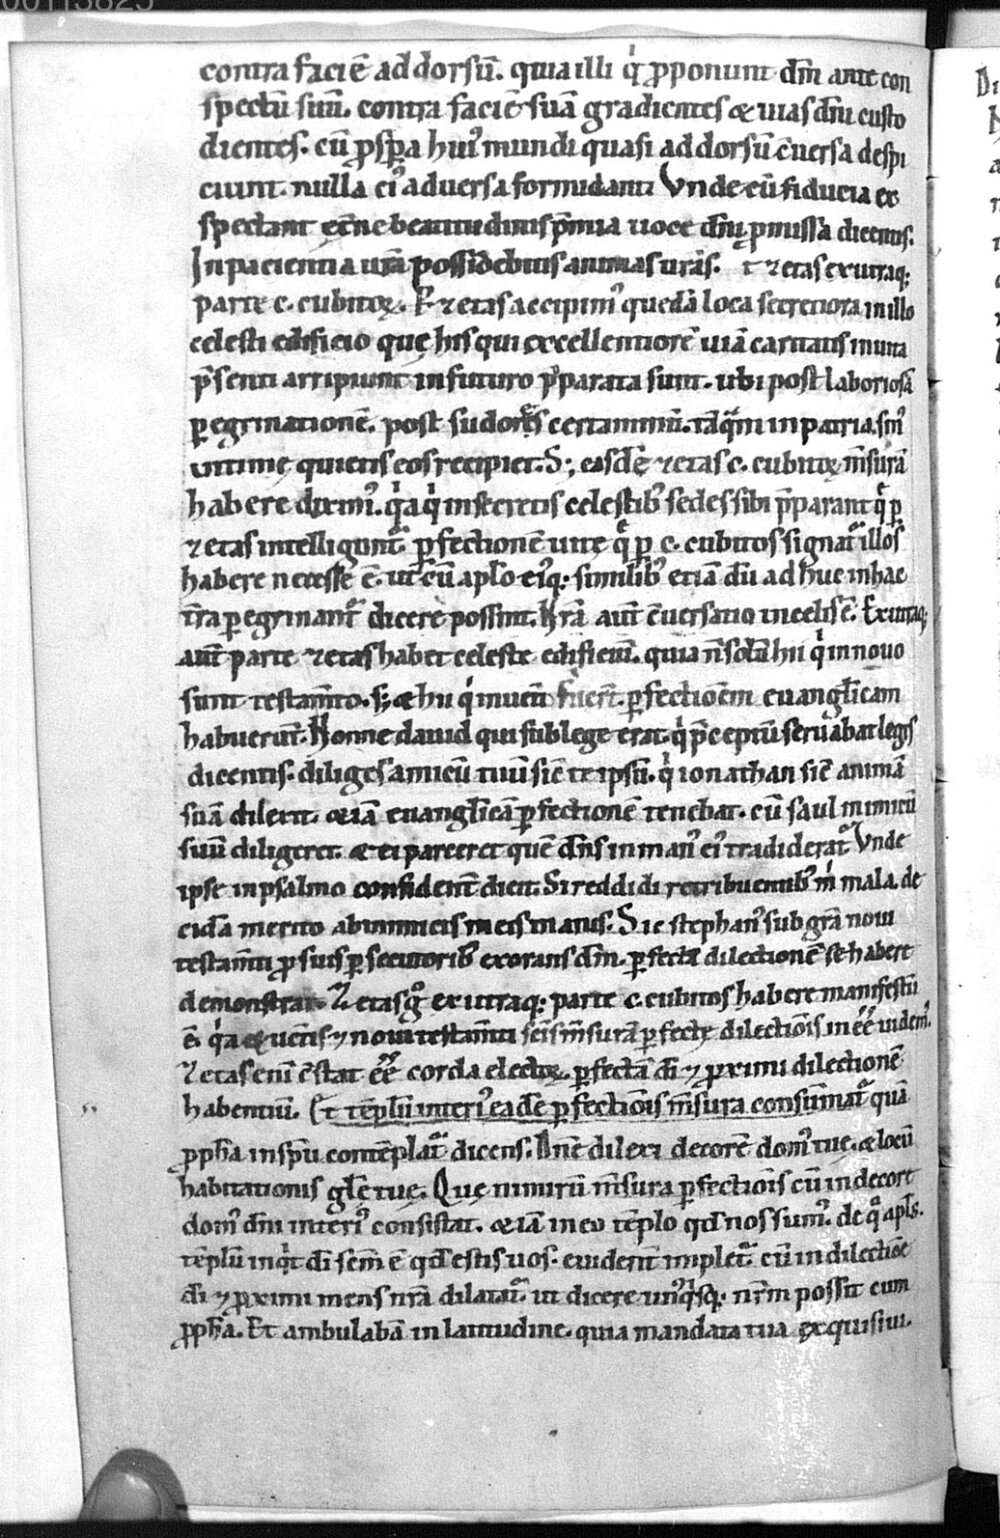 00113825
contra faciē ad dorsū. quia illi q̇ ꝓponunt dn̄m ante con
spectū suū. contra faciē suā gradientes & uias dn̄i custo
dientes. cū ꝓspa huiꝰ mundi quasi ad dorsū ꝯuersa despi
ciunt. nulla eiꝰ aduersa formidanti Vnde cū fiducia ex
spectant et̄ne beatitudinis p̄mia uoce dn̄i ꝓmissa dicentis.
In pacientia urā possidebitis animas urās. ⁊ zetas ex utraq;
parte .c. cubitoꝝ. Per zetas accipimꝰ quedā loca secretiora in illo
celesti edificio quę his qui excellentiorē uiā caritatis in uita
p̄senti arripiunt in futuro p̄parata sunt. ubi post laboriosā
ꝑegrinationē. post sudores certaminū. tāq̄m in patria sinꝰ
intimę quietis eos recipiet. S; easdē zetas .c. cubitoꝝ m̄surā
habere diximꝰ. q̇a q̇ in secretis celestibꝰ sedes sibi p̄parant q̄ ꝑ
zetas intelligunt᷑ ꝑfectionē uitę q̄ ꝑ .c. cubitos signat᷑ illos
habere necesse ē. ut cū aplo eiꝰq; similibꝰ etiā dū adhuc in hac
t̄ra ꝑegrinant᷑ dicere possint. Nrā aut̄ ꝯuersatio in celis ē. Ex utraq;
aut̄ parte zetas habet celeste edificiū. quia n̄ solū hii q̇ in nouo
sunt testam̄to. s; & hii q̇ inuenti fuer̄. ꝑfectionem euang̅licam
habuerunt. Nonne dauid qui sub lege erat. q̇ p̄ceptū seruabat legis
dicentis. diliges amicū tuū sic̄ te ipsū. q̇ ionathan sic̄ animā
suā dilexit. & iā euang̅licā ꝑfectionē tenebat. cū saul inimicū
suū diligeret. & ei parceret quē dn̄s in manꝰ eiꝰ tradiderat. Vnde
ipse in psalmo confident̄ dicit. Si reddidi retribuentibꝰ m̄ mala. de
cidā merito ab inimicis meis inanis. Sic stephanꝰ sub grā noui
testam̄ti ꝓ suis ꝑsecutoribꝰ exorans dn̄m. ꝑfectā dilectionē se habere
demonstrat. Zetas g̊ ex utraq; parte .c. cubitos habere manifestū
ē. q̇a & uet̄is ⁊ noui testam̄ti sc̄is m̄surā ꝑfectę dilectiōis inēē uidemꝰ.
Zetas enī ꝯstat ēē corda electoꝝ. ꝑfectā dī ⁊ ꝓximi dilectionē
habentiū. Et tēplū interiꝰ eadē ꝑfectiōis m̄sura consūmat᷑ quā
ꝓph̄a in sp̄u contēplat᷑ dicens. Dn̄e dilexi decorē domꝰ tuę. & locū
habitationis gl̄ę tuę. Quę nimirū m̄sura ꝑfectiōis cū in decore
domꝰ dn̄i interiꝰ consistat. & iā in eo tēplo qd̄ nos sumꝰ. de q̊ apl̄s.
tēplū inq̇t dī sc̄m ē qd̄ estis uos. euident̄ implet᷑. cū in dilectiōe
dī ⁊ ꝓximi mens nrā dilatat᷑. ut dicere unꝰq̇sq; nr̄m possit cum
ꝓph̄a. Et ambulabā in latitudine. quia mandata tua exquisiui.